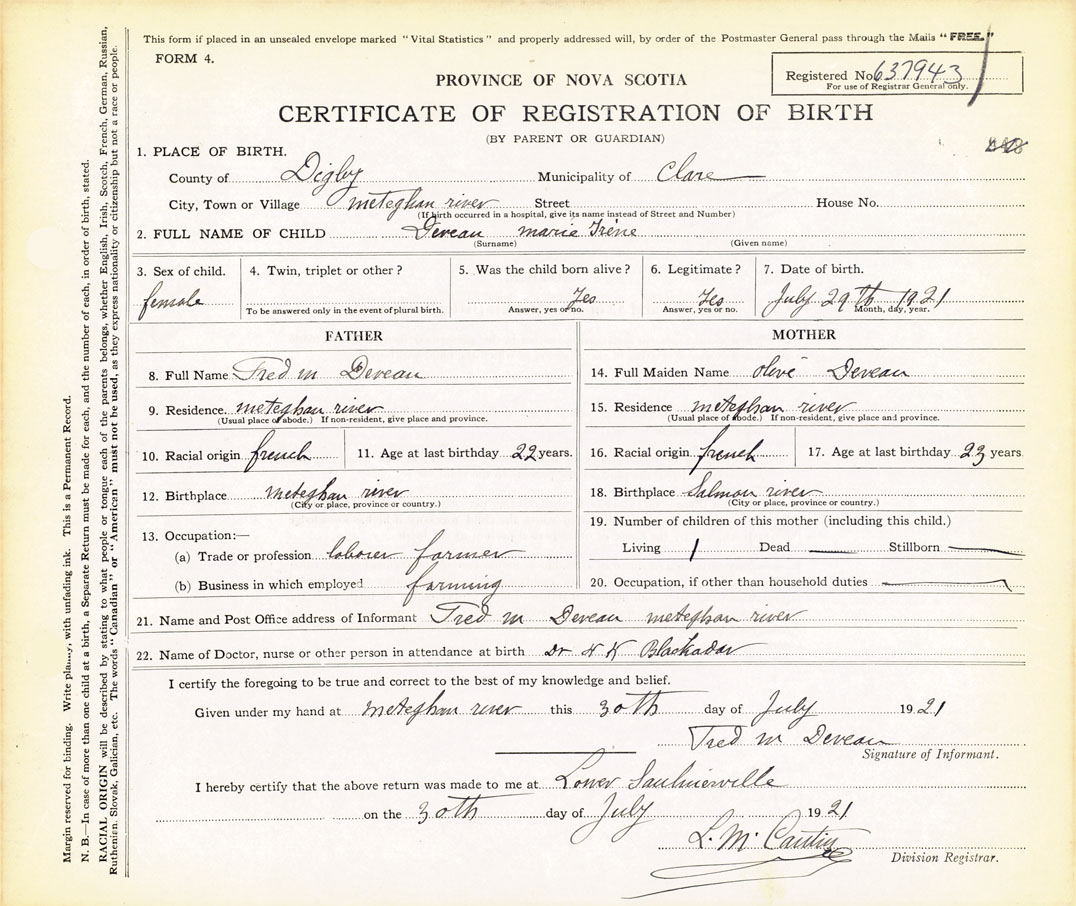 This form if placed in an unsealed envelope marked "Vital Statistics" and properly addressed will, by order of the Postmaster General pass through the Mails "FREE."
FORM 4.
Registered No. 637943
For use of Registrar General only.
PROVINCE OF NOVA SCOTIA
CERTIFICATE OF REGISTRATION OF BIRTH
(BY PARENT OR GUARDIAN)
1. PLACE OF BIRTH.
County of Digby Municipality of Clare
City, Town or Village meteghan river Street House No.
(If birth occurred in a hospital, give its name instead of Street and Number)
2. FULL NAME OF CHILD Deveau marie Irène
(Surname) (Given name)
3. Sex of child. 4. Twin, triplet or other? 5. Was the child born alive? 6. Legitimate? 7. Date of birth.
female Yes Yes July 29th 1921
To be answered only in the event of plural birth. Answer, yes or no. Answer, yes or no. Month, day, year.
FATHER
8. Full Name Fred m Deveau
9. Residence. meteghan river
(Usual place of abode.) If non-resident, give place and province.
10. Racial origin french 11. Age at last birthday 22 years.
12. Birthplace meteghan river
(City or place, province or country.)
13. Occupation:—
(a) Trade or profession laborer farmer
(b) Business in which employed farming
MOTHER
14. Full Maiden Name olive Deveau
15. Residence meteghan river
(Usual place of abode.) If non-resident, give place and province.
16. Racial origin french 17. Age at last birthday 23 years
18. Birthplace Salmon river
(City or place, province or country.)
19. Number of children of this mother (including this child.)
Living 1 Dead — Stillborn —
20. Occupation, if other than household duties —
21. Name and Post Office address of Informant Fred m Deveau meteghan river
22. Name of Doctor, nurse or other person in attendance at birth Dr H K Blackadar
I certify the foregoing to be true and correct to the best of my knowledge and belief.
Given under my hand at meteghan river this 30th day of July 1921
Fred m Deveau
Signature of Informant.
I hereby certify that the above return was made to me at Lower Saulnierville
on the 30th day of July 1921
L. M.
Division Registrar.
Margin reserved for binding. Write plainly, with unfading ink. This is a Permanent Record.
N. B.—In case of more than one child at a birth, a Separate Return must be made for each, and the number of each, in order of birth, stated.
RACIAL ORIGIN will be described by stating to what people or tongue each of the parents belongs, whether English, Irish, Scotch, French, German, Russian,
Ruthenien, Slovak, Galician, etc. The words "Canadian" or "American" must not be used, as they express nationality or citizenship but not a race or people.